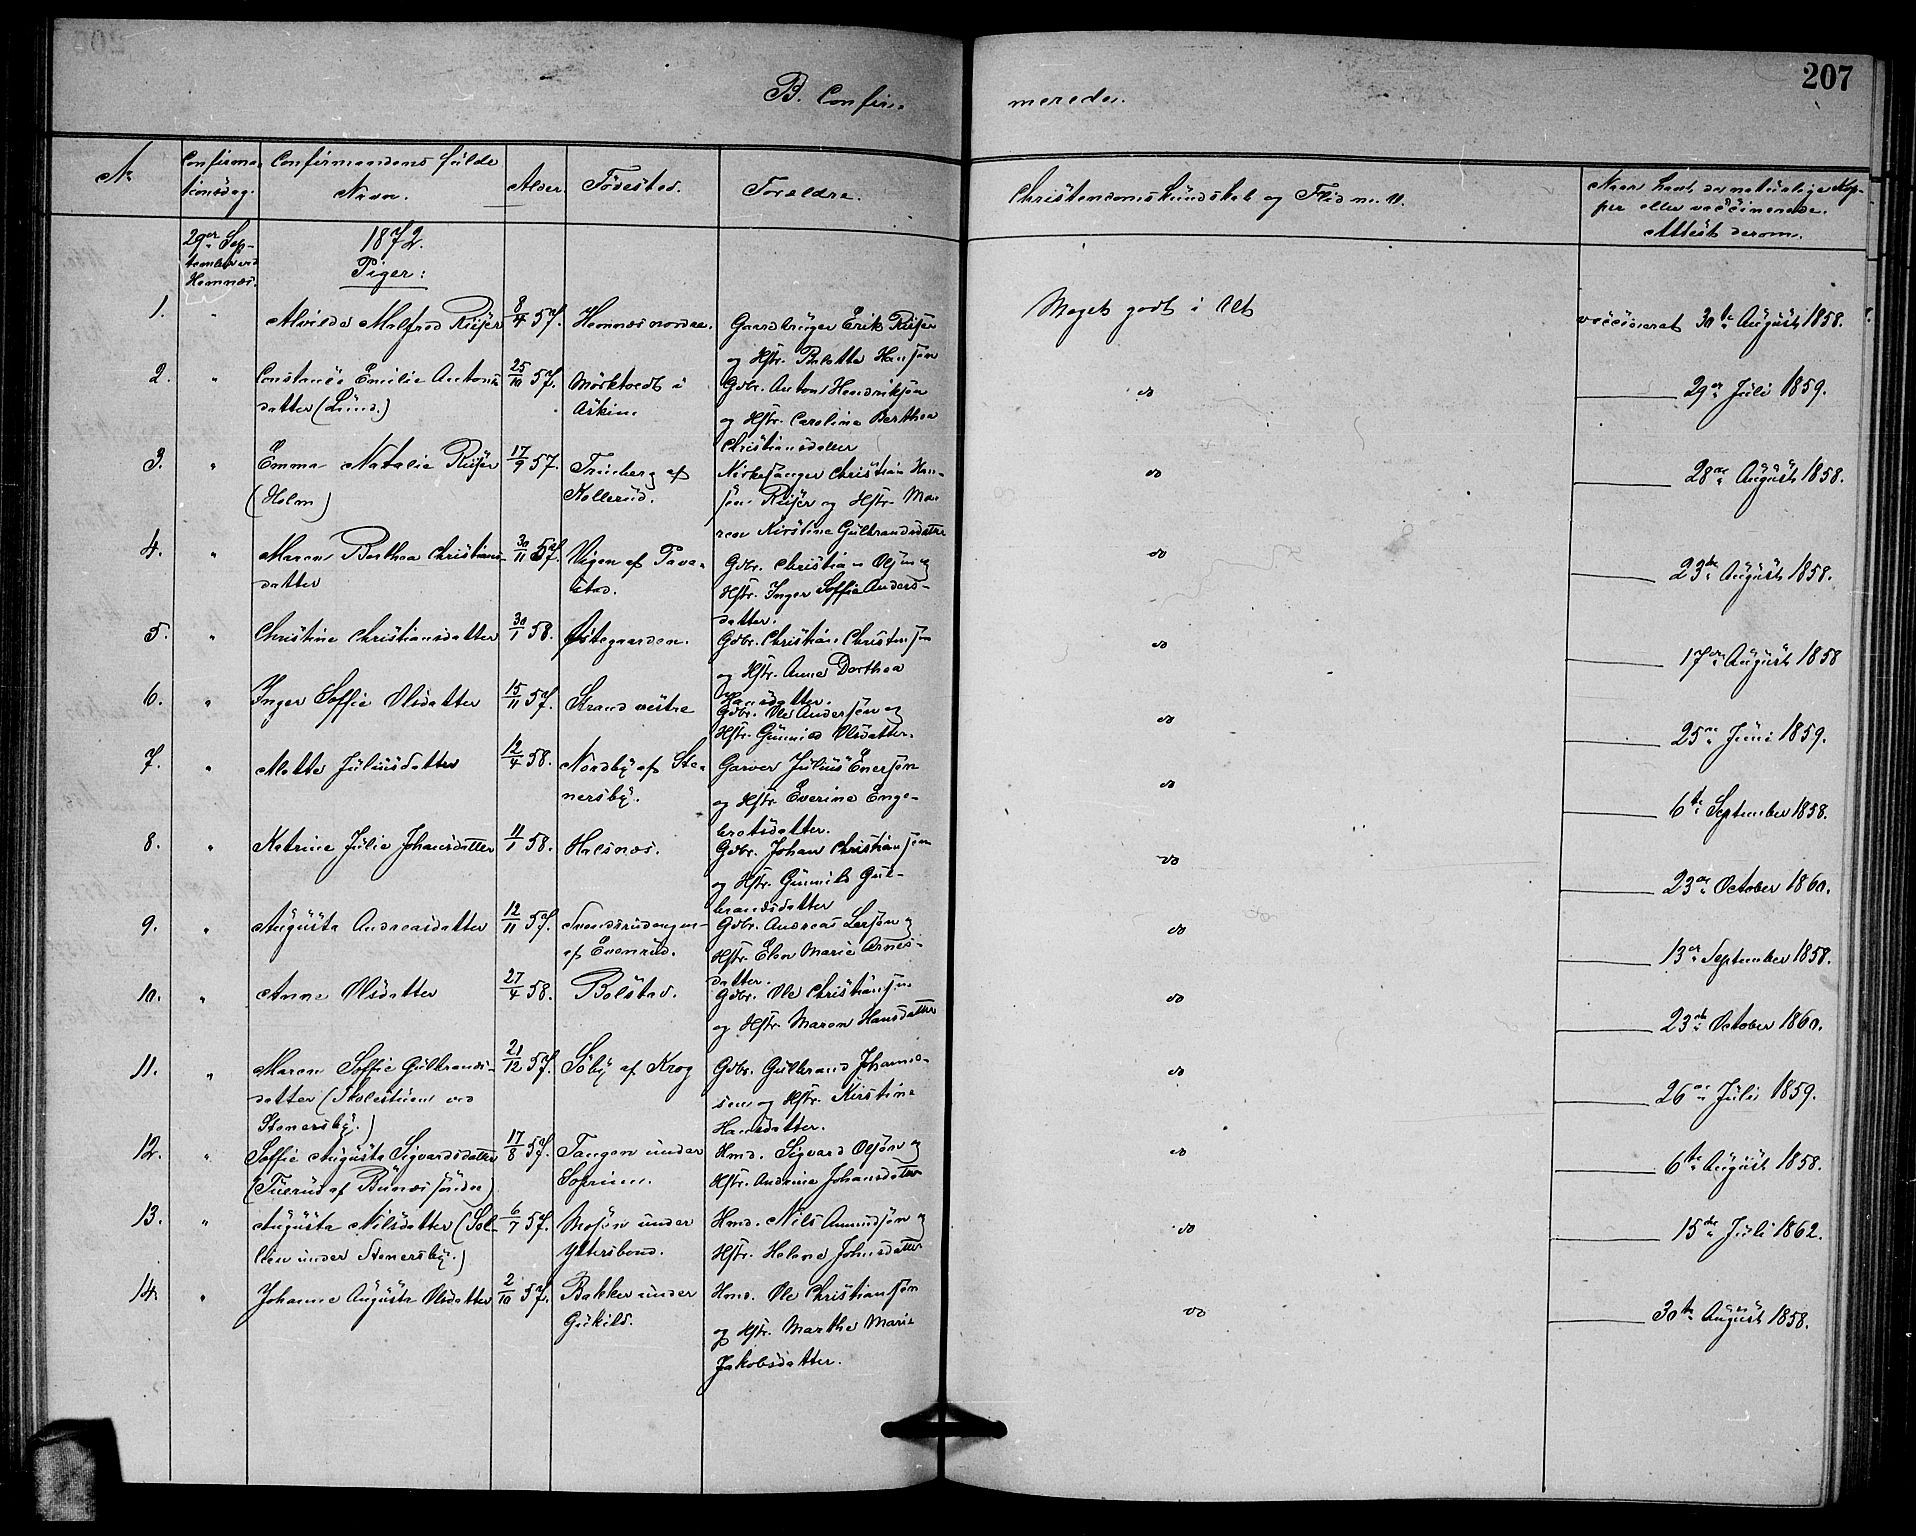 207
B. Confir-
merede.
No
Confirma-
tionsdag.
Confirmandens fulde
Navn.
Alder.
Fødested.
Forældre.
Christendomskundskab og Flid m. v.
Naar havt de naturlige Kop-
per eller vaccinerede.
Attest derom.
29de Sep-
tember ved
Hemnæs.
1872.
Piger:
1. " Alvilde Malfrid Riiser 8/4 57. Hemnæs nordre. Gaardbruger Erik Riiser
og Hstr. Hansøn
Meget godt i Alt
vaccineret 30te August 1858.
2. " Constance Emilie Antons-
datter (Lund.) 25/10 57. Mørktvedt i
Askim. Gdbr. Anton Hendriksøn
og Hstr. Caroline Berthea
Christiansdatter
do
29de Juli 1859.
3. " Emma Natalie Riiser
(Holm) 17/9 57. af
Kollerud. Kirkesanger Christian Han-
søn Riiser og Hstr. Ma-
ren Kirstine Gulbrandsdatter
do
28de August 1858.
4. " Maren Berthea Christians-
datter 30/11 57. Vigen af Tave-
stad. Gdbr. Christian Olsøn og
Hstr. Inger Soffie Anders-
datter.
do
23de August 1858.
5. " Christine Christiansdatter 30/1 58. Østegaarden. Gdbr. Christian Christensøn
og Hstr. Anne Dorthea
Hansdatter.
do
17de August 1858
6. " Inger Soffie Olsdatter 15/11 57. Strand vestre Gdbr. Ole Andersøn og
Hstr. Gunnild Olsdatter.
do
25de Juni 1859.
7. " Mette Juliusdatter 12/4 58. Nordby af Ste-
nersby. Garver Julius Enersøn
og Hstr. Everine Enge-
bretsdatter.
do
6te September 1858.
8. " Katrine Julie Johansdatter 11/1 58. Halsnæs. Gdbr. Johan Christiansøn
og Hstr. Gunnild Gul-
brandsdatter
do
23de October 1860.
9. " Augusta Andreasdatter 12/11 57. Svendsrudengen
af Evenrud. Gdbr. Andreas Larsøn og
Hstr. Elen Marie Arnes-
datter.
do
13de September 1858.
10. " Anne Olsdatter 27/4 58. Bolstad. Gdbr. Ole Christiansøn
og Hstr. Maren Hansdatter
do
23de October 1860.
11. " Maren Soffie Gulbrands-
datter (Skolestuen ved
Stenersby.) 21/12 57. Søby af Krog Gdbr. Gulbrand Johannes-
sen og Hstr. Kirstine
Hansdatter.
do
26de Juli 1859.
12. " Soffie Augusta Sigvardsdatter
(Tuerud af Bunæs søndre) 17/8 57. Tangen under
Soprim. Hmd. Sigvard Olsøn og
Hstr. Andrine Johansdatter
do
6te August 1858.
13. " Augusta Nilsdatter (Sol-
lien under Stenersby.) 6/7 57. Mosen under
Yttersbond. Hmd. Nils Amundsøn og
Hstr. Helene Johnsdatter
do
15de Juli 1862.
14. " Johanne Augusta Olsdatter 2/10 57. Bakken under
Gukild. Hmd. Ole Christiansøn
og Hstr. Marthe Marie
Jakobsdatter.
do
30te August 1858.